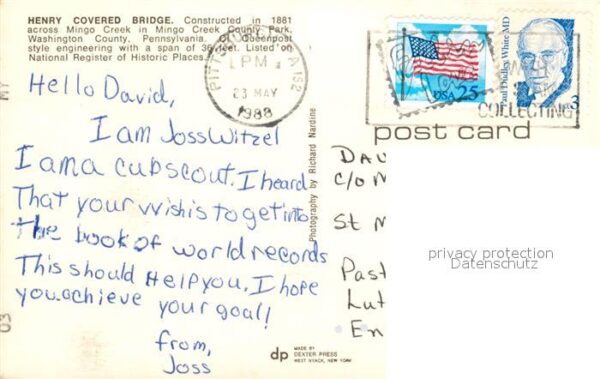 HENRY COVERED BRIDGE. Constructed in 1881
across Mingo Creek in Mingo Creek County Park,
Washington County, Pennsylvania. Queenpost
style engineering with a span of 36 feet. Listed on
National Register of Historic Places.
PM
23 MAY
1988
152
USA 25
Paul Dudley White MD
3
COLLECTING
post card
Hello David,
I am Joss Witzel
I am a cub scout. I heard
That your wish is to get into
The book of world records
This should Help you. I hope
you achieve your goal!
from,
Joss
Photography by Richard Nardine
c/o
St
Past
Lut
En
privacy protection
Datenschutz
dp
MADE BY
DEXTER PRESS
WEST NYACK, NEW YORK